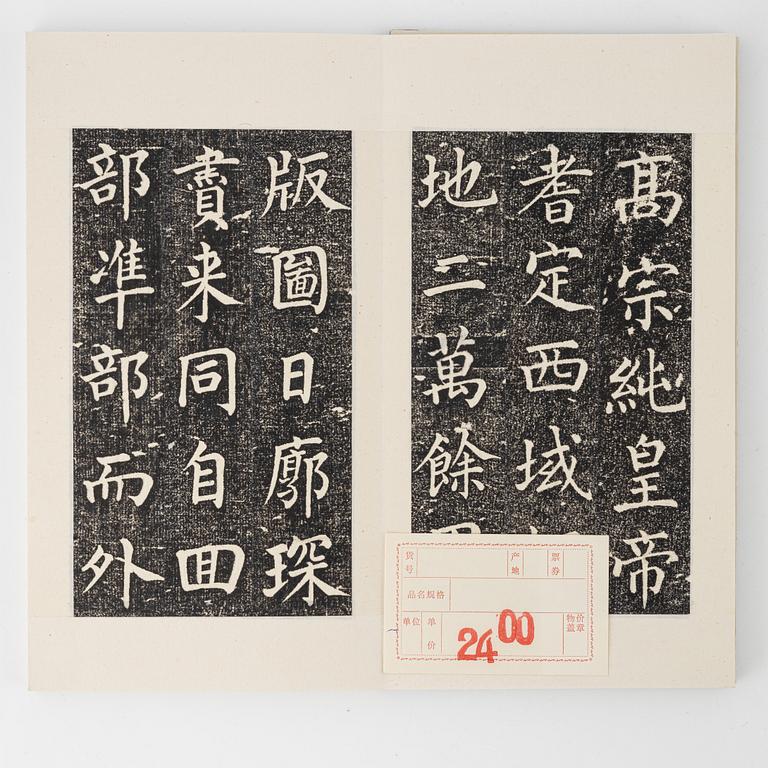 髙宗純皇帝
耆定西域
地二萬餘
版圖日廓琛
賮来同自囬
部凖部而外
货号
产地
票券
品名规格
单位
单价
24 00
物价盖章